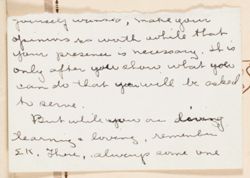 yourself wanted, make your
opinions so worth while that
your presence is necessary. It is
only after you show what you
can do that you will be asked
to serve.
But while you are
learning & loving, remember
always some one